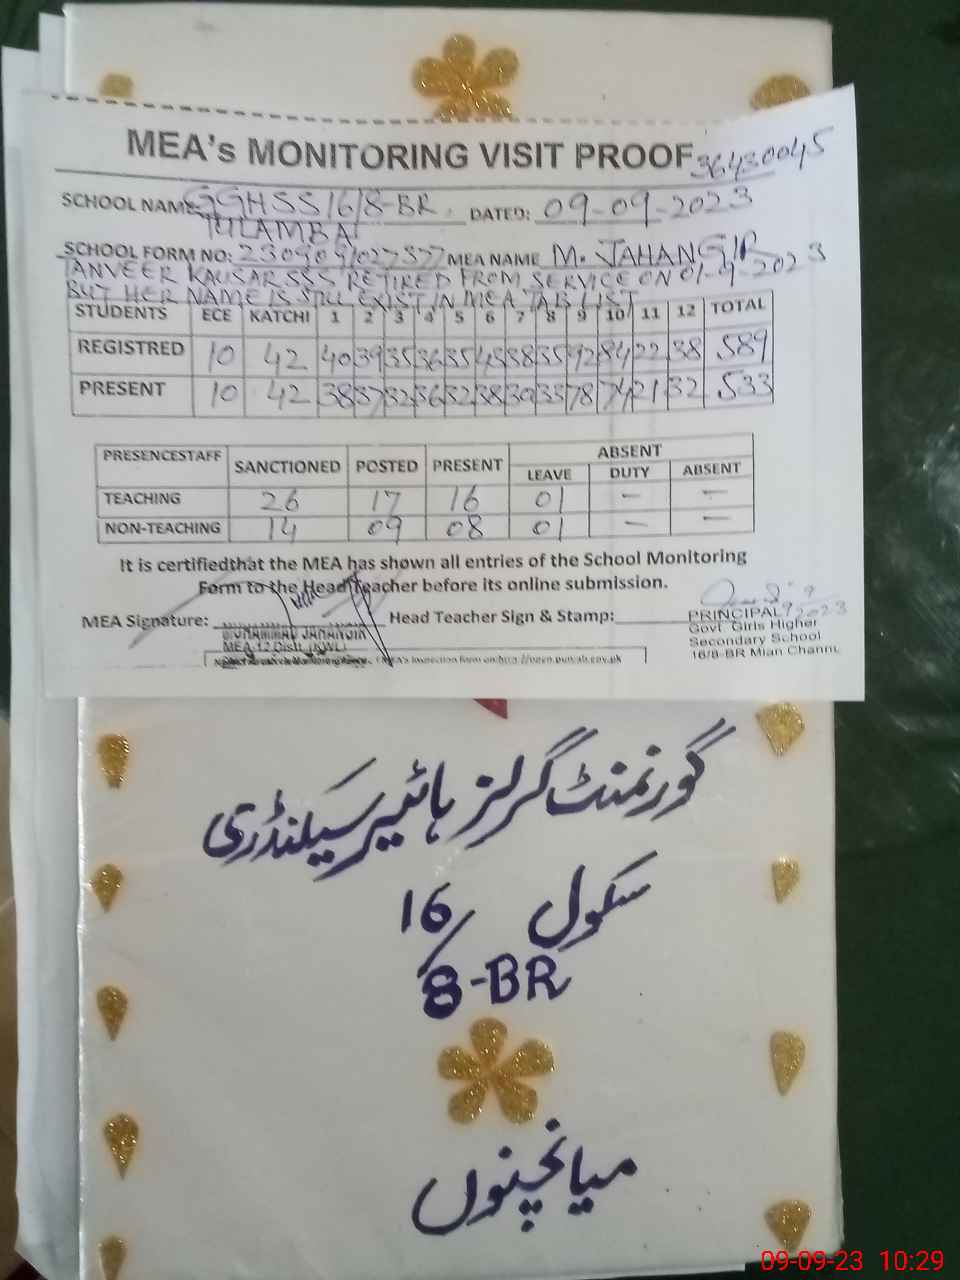 MEA's MONITORING VISIT PROOF 36430045
SCHOOL NAME GGHSS 16/8-BR DATED: 09-09-2023
TULAMBA
SCHOOL FORM NO: 230909/027377 MEA NAME M. JAHANGIR
TANVEER KAUSAR SSS RETIRED FROM SERVICE ON 01-9-2023
BUT HER NAME IS STILL EXIST IN MEA TAB LIST
STUDENTS ECE KATCHI 1 2 3 4 5 6 7 8 9 10 11 12 TOTAL
REGISTRED 10 42 40 39 35 36 35 45 38 35 92 84 22 38 589
PRESENT 10 42 38 37 32 36 32 38 30 33 78 74 21 32 533
PRESENCESTAFF SANCTIONED POSTED PRESENT ABSENT
LEAVE DUTY ABSENT
TEACHING 26 17 16 01 - -
NON-TEACHING 14 09 08 01 - -
It is certifiedthat the MEA has shown all entries of the School Monitoring
Form to the Head Teacher before its online submission.
MEA Signature: Head Teacher Sign & Stamp:
MUHAMMAD JAHANGIR
MEA-12 Distt. (KWL)
PRINCIPAL
Govt. Girls Higher
Secondary School
16/8-BR Mian Channu
گورنمنٹ گرلز ہائیر سیکنڈری
سکول 16
8-BR
میانچنوں
09-09-23 10:29